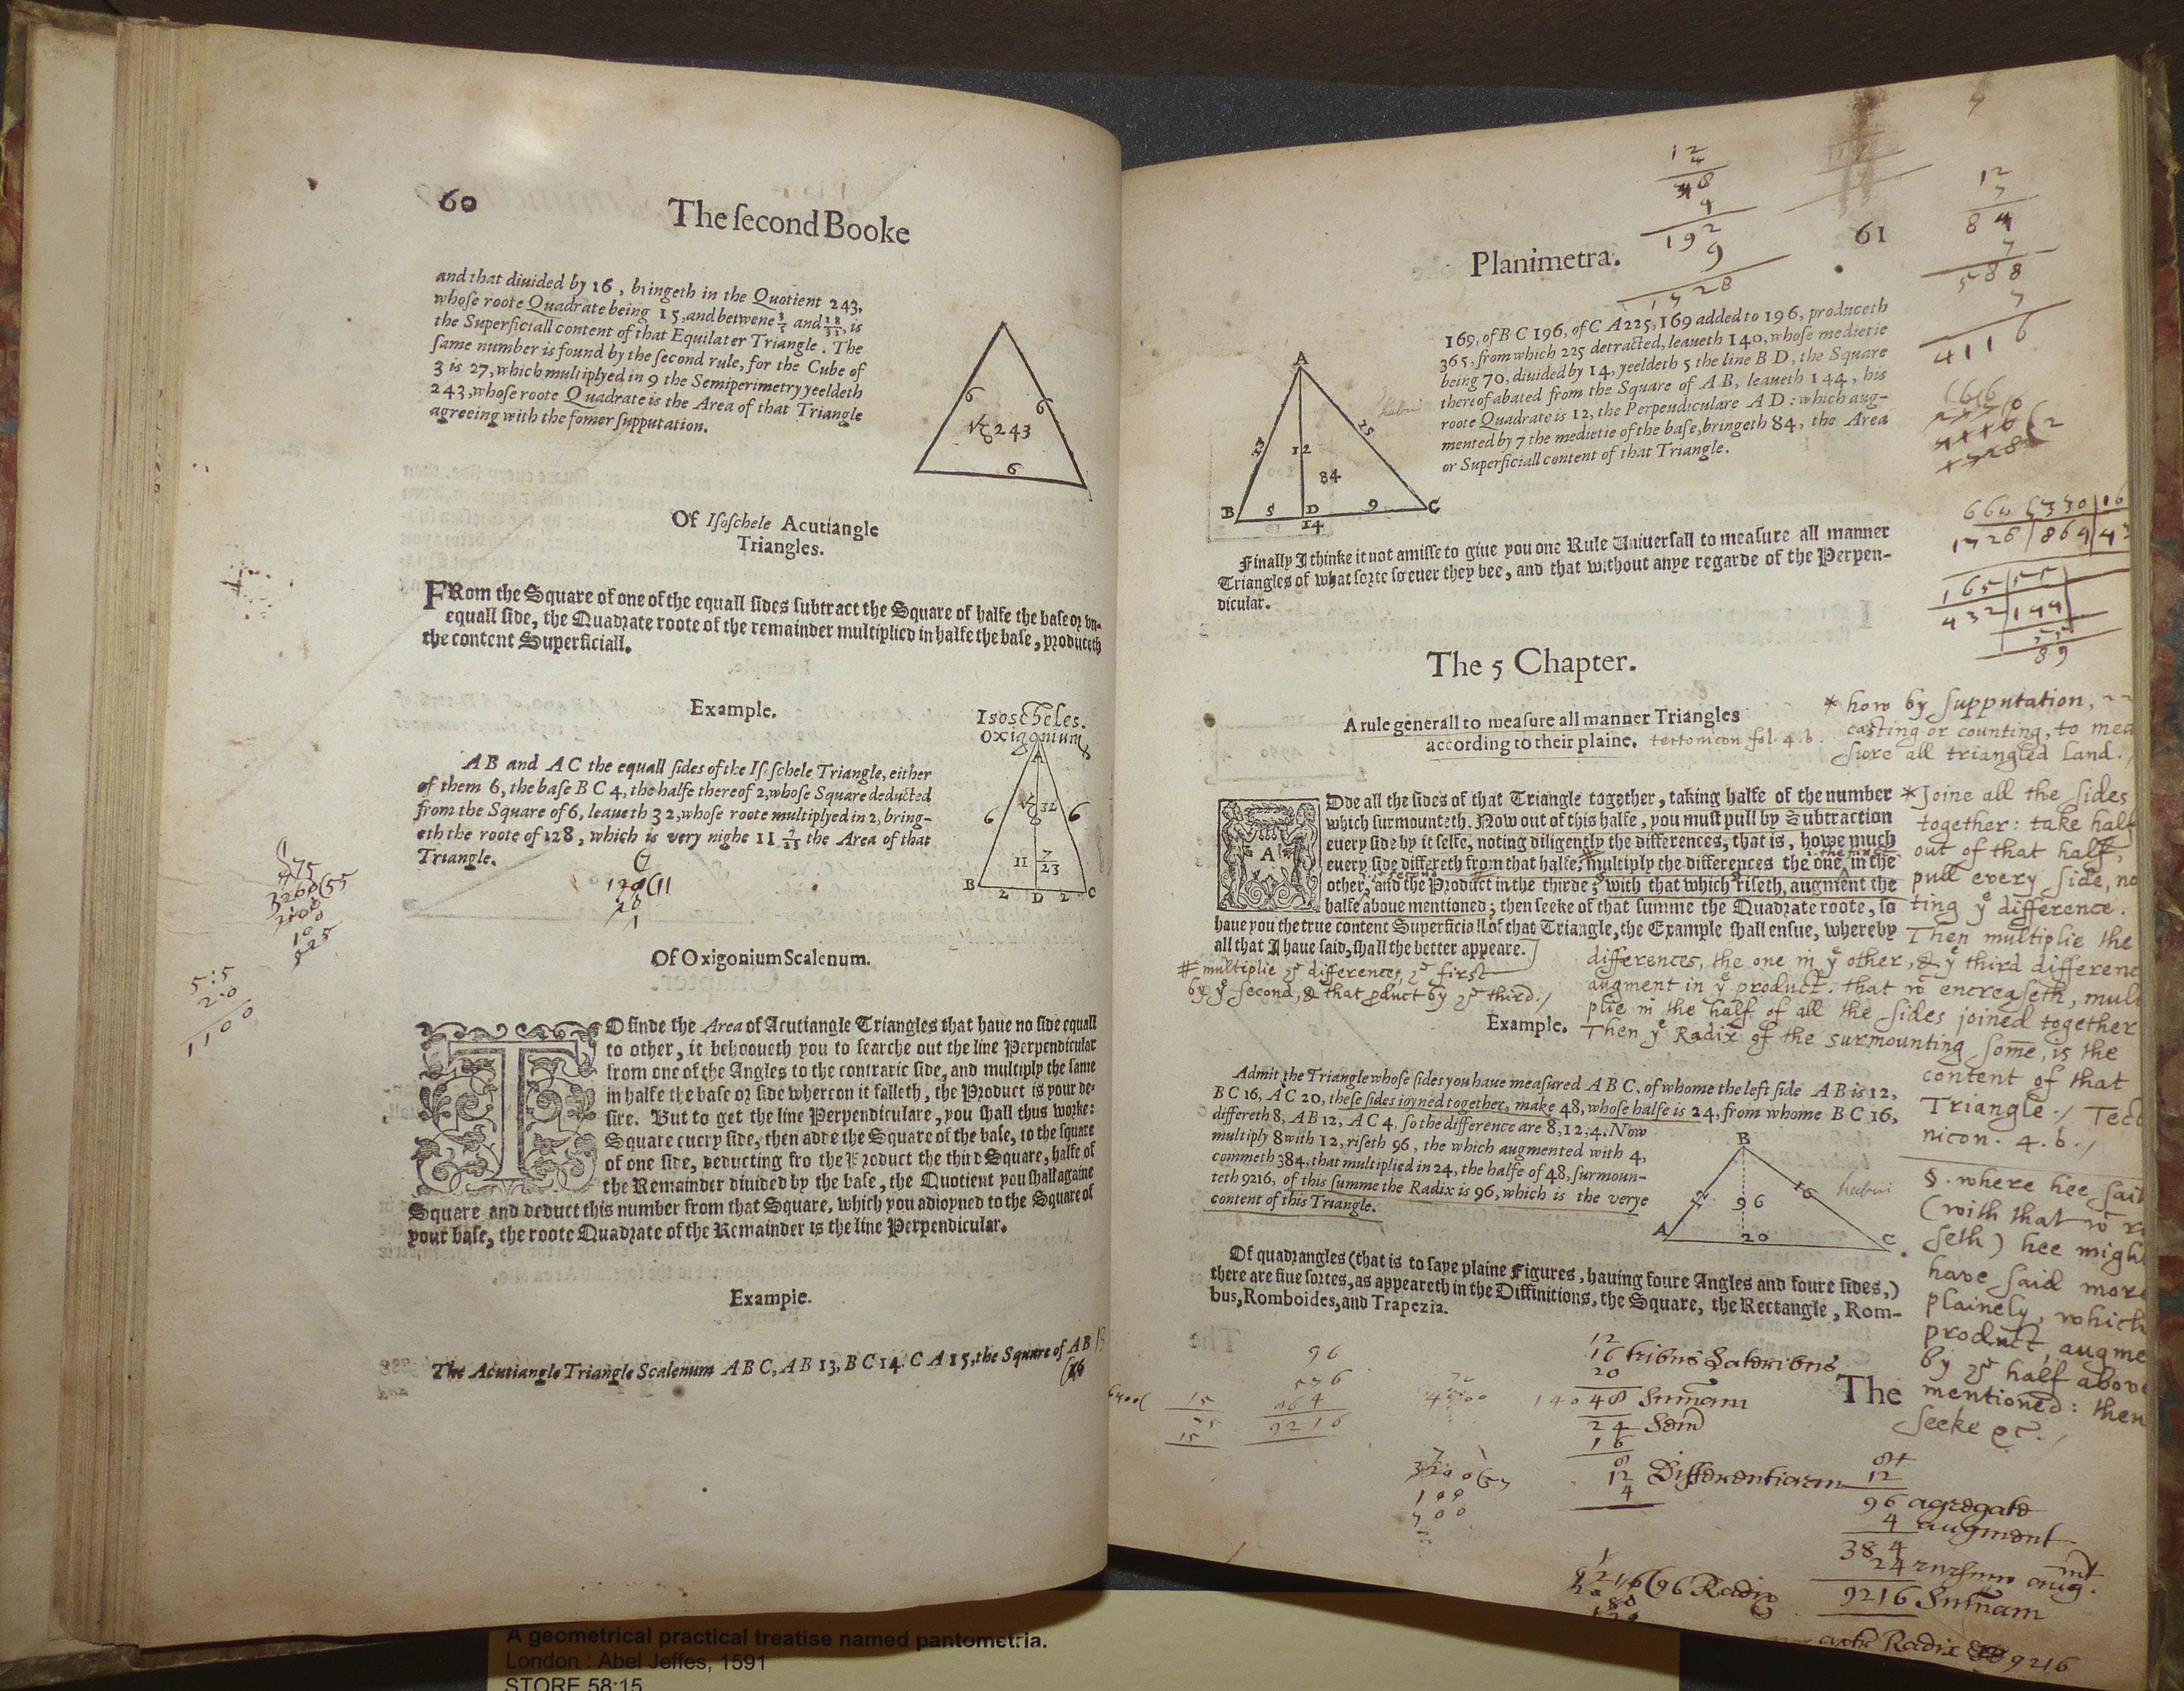 60
The ſecond Booke
and that diuided by 16, bringeth in the Quotient 243,
whoſe roote Quadrate being 15, and betwene and is
the Superficiall content of that Equilater Triangle. The
ſame number is found by the ſecond rule, for the Cube of
3 is 27, which multiplyed in 9 the Semiperimetry yeeldeth
243, whoſe roote Quadrate is the Area of that Triangle
agreeing with the fomer ſupputation.
6
6
243
6
Of Iſoſchele Acutiangle
Triangles.
FRom the Square of one of the equall ſides ſubtract the Square of halfe the baſe or vn-
equall ſide, the Quadrate roote of the remainder multiplied in halfe the baſe, produceth
the content Superficiall.
Example.
Isoscheles.
Oxigonium
A B and A C the equall ſides of the Iſoſchele Triangle, either
of them 6, the baſe B C 4, the halfe thereof 2, whoſe Square deducted
from the Square of 6, leaueth 32, whoſe roote multiplyed in 2, bring-
eth the roote of 128, which is very nighe 11 7/23 the Area of that
Triangle.
A
6
32
6
11 7/23
B
2
D
2
C
Of Oxigonium Scalenum.
TO finde the Area of Acutiangle Triangles that haue no ſide equall
to other, it behooueth you to ſearche out the line Perpendicular
from one of the Angles to the contrarie ſide, and multiply the ſame
in halfe the baſe or ſide whereon it falleth, the Product is your de-
ſire. But to get the line Perpendiculare, you ſhall thus worke:
Square euery ſide, then adde the Square of the baſe, to the ſquare
of one ſide, deducting fro the Product the third Square, halfe of
the Remainder diuided by the baſe, the Quotient you ſhall againe
Square and deduct this number from that Square, which you adioyned to the Square of
your baſe, the roote Quadrate of the Remainder is the line Perpendicular.
Example.
The Acutiangle Triangle Scalenum A B C, A B 13, B C 14. C A 15, the Square of A B
5:5
20
1100
Planimetra.
61
12
4
48
4
192
9
1728
12
7
84
7
588
7
4116
169, of B C 196, of C A 225, 169 added to 196, produceth
365, from which 225 detracted, leaueth 140, whoſe medietie
being 70, diuided by 14, yeeldeth 5 the line B D, the Square
thereof abated from the Square of A B, leaueth 144, his
roote Quadrate is 12, the Perpendiculare A D: which aug-
mented by 7 the medietie of the baſe, bringeth 84, the Area
or Superficiall content of that Triangle.
A
13
15
12
84
B
5
D
9
C
14
Finally I thinke it not amiſſe to giue you one Rule Vniuerſall to meaſure all manner
Triangles of what ſorte ſo euer they bee, and that without anye regarde of the Perpen-
dicular.
The 5 Chapter.
A rule generall to meaſure all manner Triangles
according to their plaine.
tectonicon fol. 4. b.
* how by ſupputation,
caſting or counting, to mea
ſure all triangled Land.
ADde all the ſides of that Triangle together, taking halfe of the number
which ſurmounteth. Now out of this halfe, you muſt pull by Subtraction
euery ſide by it ſelfe, noting diligently the differences, that is, howe much
euery ſide differeth from that halfe, multiply the differences the one in the
other, and the Product in the thirde; with that which riſeth, augment the
halfe aboue mentioned; then ſeeke of that ſumme the Quadrate roote, ſo
haue you the true content Superficiall of that Triangle, the Example ſhall enſue, whereby
all that I haue ſaid, ſhall the better appeare.
* Joine all the ſides
together: take half
out of that half,
pull every ſide, no
ting yͤ difference.
Then multiplie the
differences, the one in yͤ other, & yͤ third differenc
augment in yͤ product. that encreaſeth, mul
plie in the half of all the ſides joined together
Then yͤ Radix of the surmounting ſome, is the
content of that
Triangle. / Tect
nicon. 4. b. /
# multiplie differences, first
by yͤ ſecond, & that product by third. /
Example.
Admit the Triangle whoſe ſides you haue meaſured A B C. of whome the left ſide A B is 12,
B C 16, A C 20, theſe ſides ioyned together, make 48, whoſe halfe is 24, from whome B C 16,
differeth 8, A B 12, A C 4, ſo the difference are 8; 12; 4. Now
multiply 8 with 12, riſeth 96, the which augmented with 4,
commeth 384, that multiplied in 24, the halfe of 48, ſurmoun-
teth 9216, of this ſumme the Radix is 96, which is the verye
content of this Triangle.
B
12
16
96
A
20
C
§. where hee ſait
(with that ri
ſeth) hee migh
have ſaid more
plainely, which
product, augme
by half above
mentioned: then
ſeeke &c. /
Of quadrangles (that is to ſaye plaine Figures, hauing foure Angles and foure ſides,)
there are fiue ſortes, as appeareth in the Diffinitions, the Square, the Rectangle, Rom-
bus, Romboides, and Trapezia.
The
96
576
864
9216
15
75
15
12
16
20
48
24
16
8
12
4
Differentiarum
84
12
96 agregate
4 augment
384
24
9216
9216 (96 Radix
Radix 9216
A geometrical practical treatise named pantometria.
London : Abel Jeffes, 1591
STORE 58:15